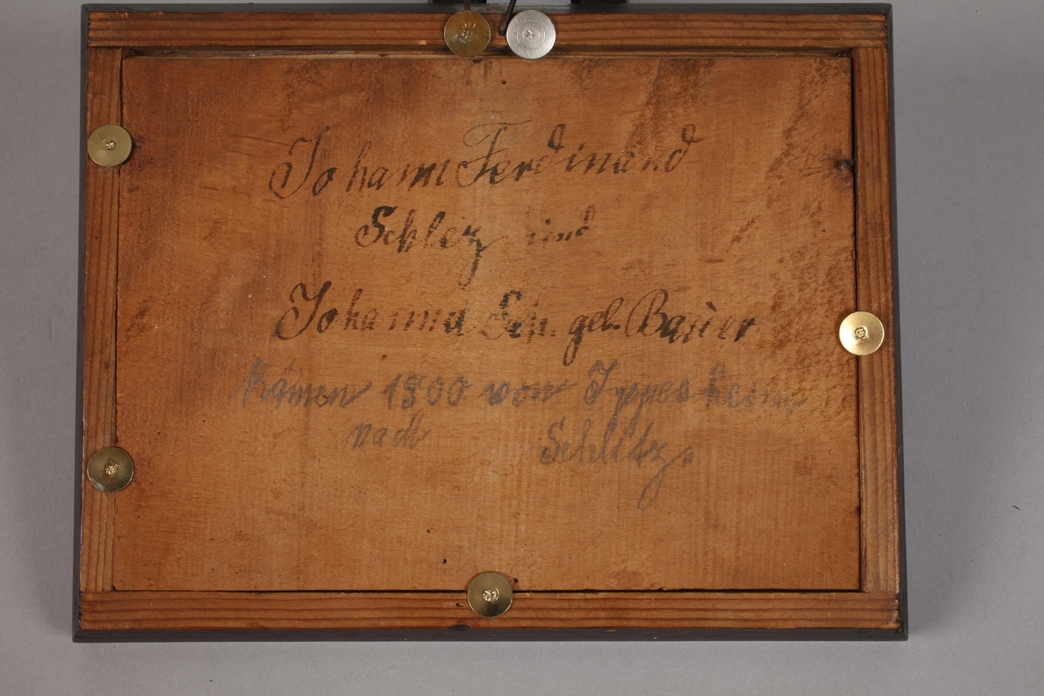 Johann Ferdinand
Schlez und
Johanna Sch. geb. Bauer
Kamen 1800 von Ippesheim
nach Schlitz.